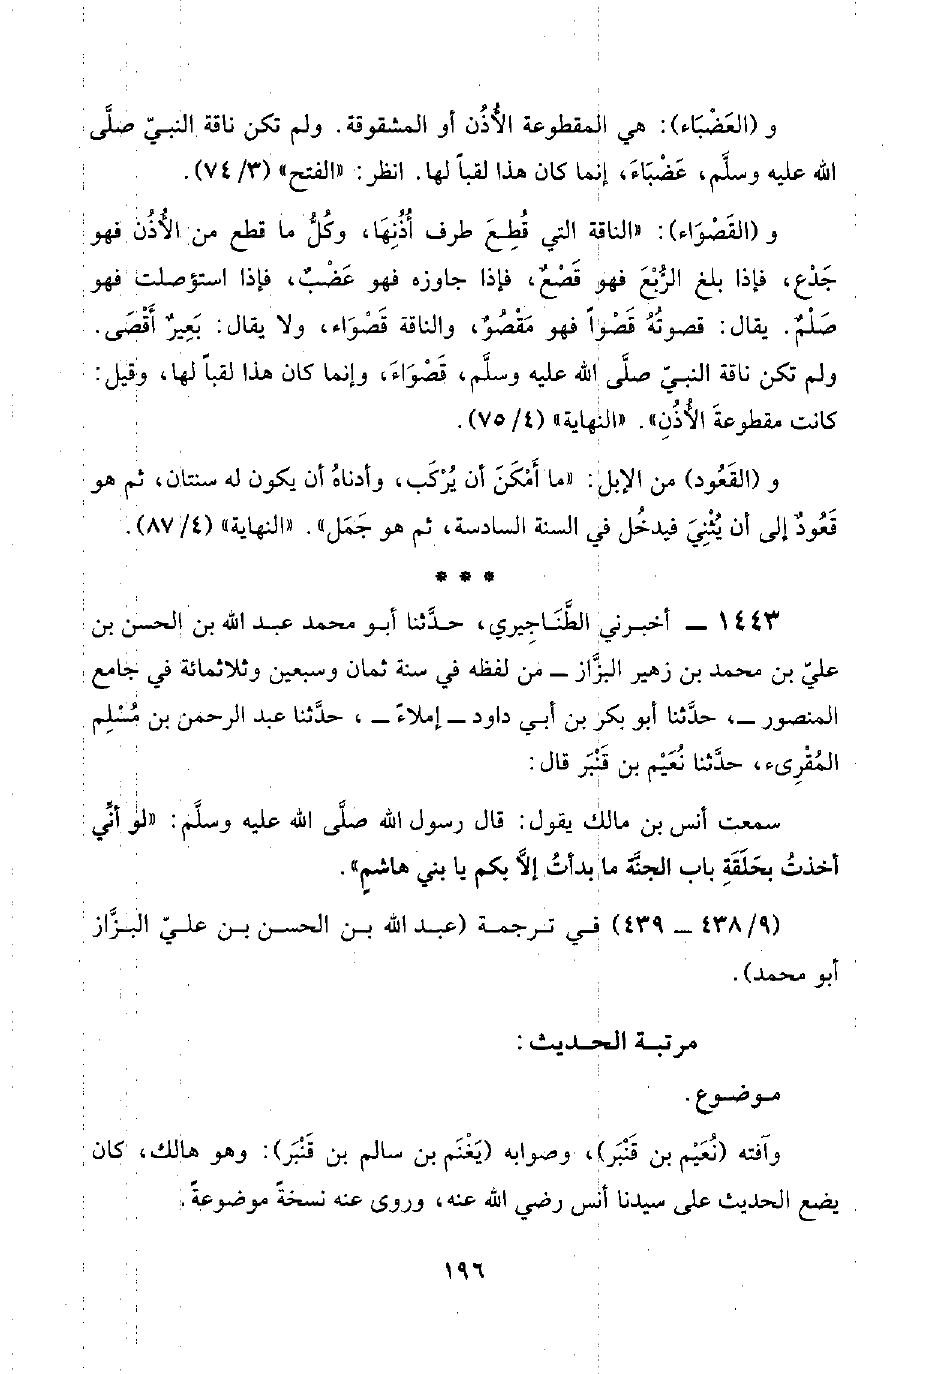 و (العَضْبَاء): هي المقطوعة الأُذُن أو المشقوقة. ولم تكن ناقة النبيّ صلَّى
الله عليه وسلَّم، عَضْبَاءَ، إنما كان هذا لقباً لها. انظر: «الفتح» (٣/ ٧٤).
و (القَصْوَاء): «الناقة التي قُطِعَ طرف أُذُنِهَا، وكُلُّ ما قطع من الأُذُن فهو
جَدْع، فإذا بلغ الرُّبْعَ فهو قَصْعٌ، فإذا جاوزه فهو عَضْبٌ، فإذا استؤصلت فهو
صَلْمٌ. يقال: قصوتُهُ قَصْواً فهو مَقْصُوٌ، والناقة قَصْوَاء، ولا يقال: بَعِيرٌ أَقْصَى.
ولم تكن ناقة النبيّ صلَّى الله عليه وسلَّم، قَصْوَاءَ، وإنما كان هذا لقباً لها، وقيل:
كانت مقطوعةَ الأُذُنِ». «النهاية» (٤/ ٧٥).
و (القَعُود) من الإبل: «ما أَمْكَنَ أن يُرْكَب، وأدناهُ أن يكون له سنتان، ثم هو
قَعُودٌ إلى أن يُثْنِيَ فيدخُل في السنة السادسة، ثم هو جَمَل». «النهاية» (٤/ ٨٧).
* * *
١٤٤٣ ــ أخبرني الطَّنَاجِيري، حدَّثنا أبو محمد عبد الله بن الحسن بن
عليّ بن محمد بن زهير البزَّاز ــ من لفظه في سنة ثمان وسبعين وثلاثمائة في جامع
المنصور ــ، حدَّثنا أبو بكر بن أبي داود ــ إملاءً ــ، حدَّثنا عبد الرحمن بن مُسْلِم
المُقْرِىء، حدَّثنا نُعَيْم بن قَنْبَر قال:
سمعت أنس بن مالك يقول: قال رسول الله صلَّى الله عليه وسلَّم: «لو أنِّي
أخذتُ بحَلَقَةِ باب الجنَّة ما بدأتُ إلاَّ بكم يا بني هاشمٍ».
(٩/ ٤٣٨ ــ ٤٣٩) في ترجمة (عبد الله بن الحسن بن عليّ البزَّاز
أبو محمد).
مرتبة الحديث:
موضوع.
وآفته (نُعَيْم بن قَنْبَر)، وصوابه (يَغْنَم بن سالم بن قَنْبَر): وهو هالك، كان
يضع الحديث على سيدنا أنس رضي الله عنه، وروى عنه نسخةً موضوعةً.
١٩٦